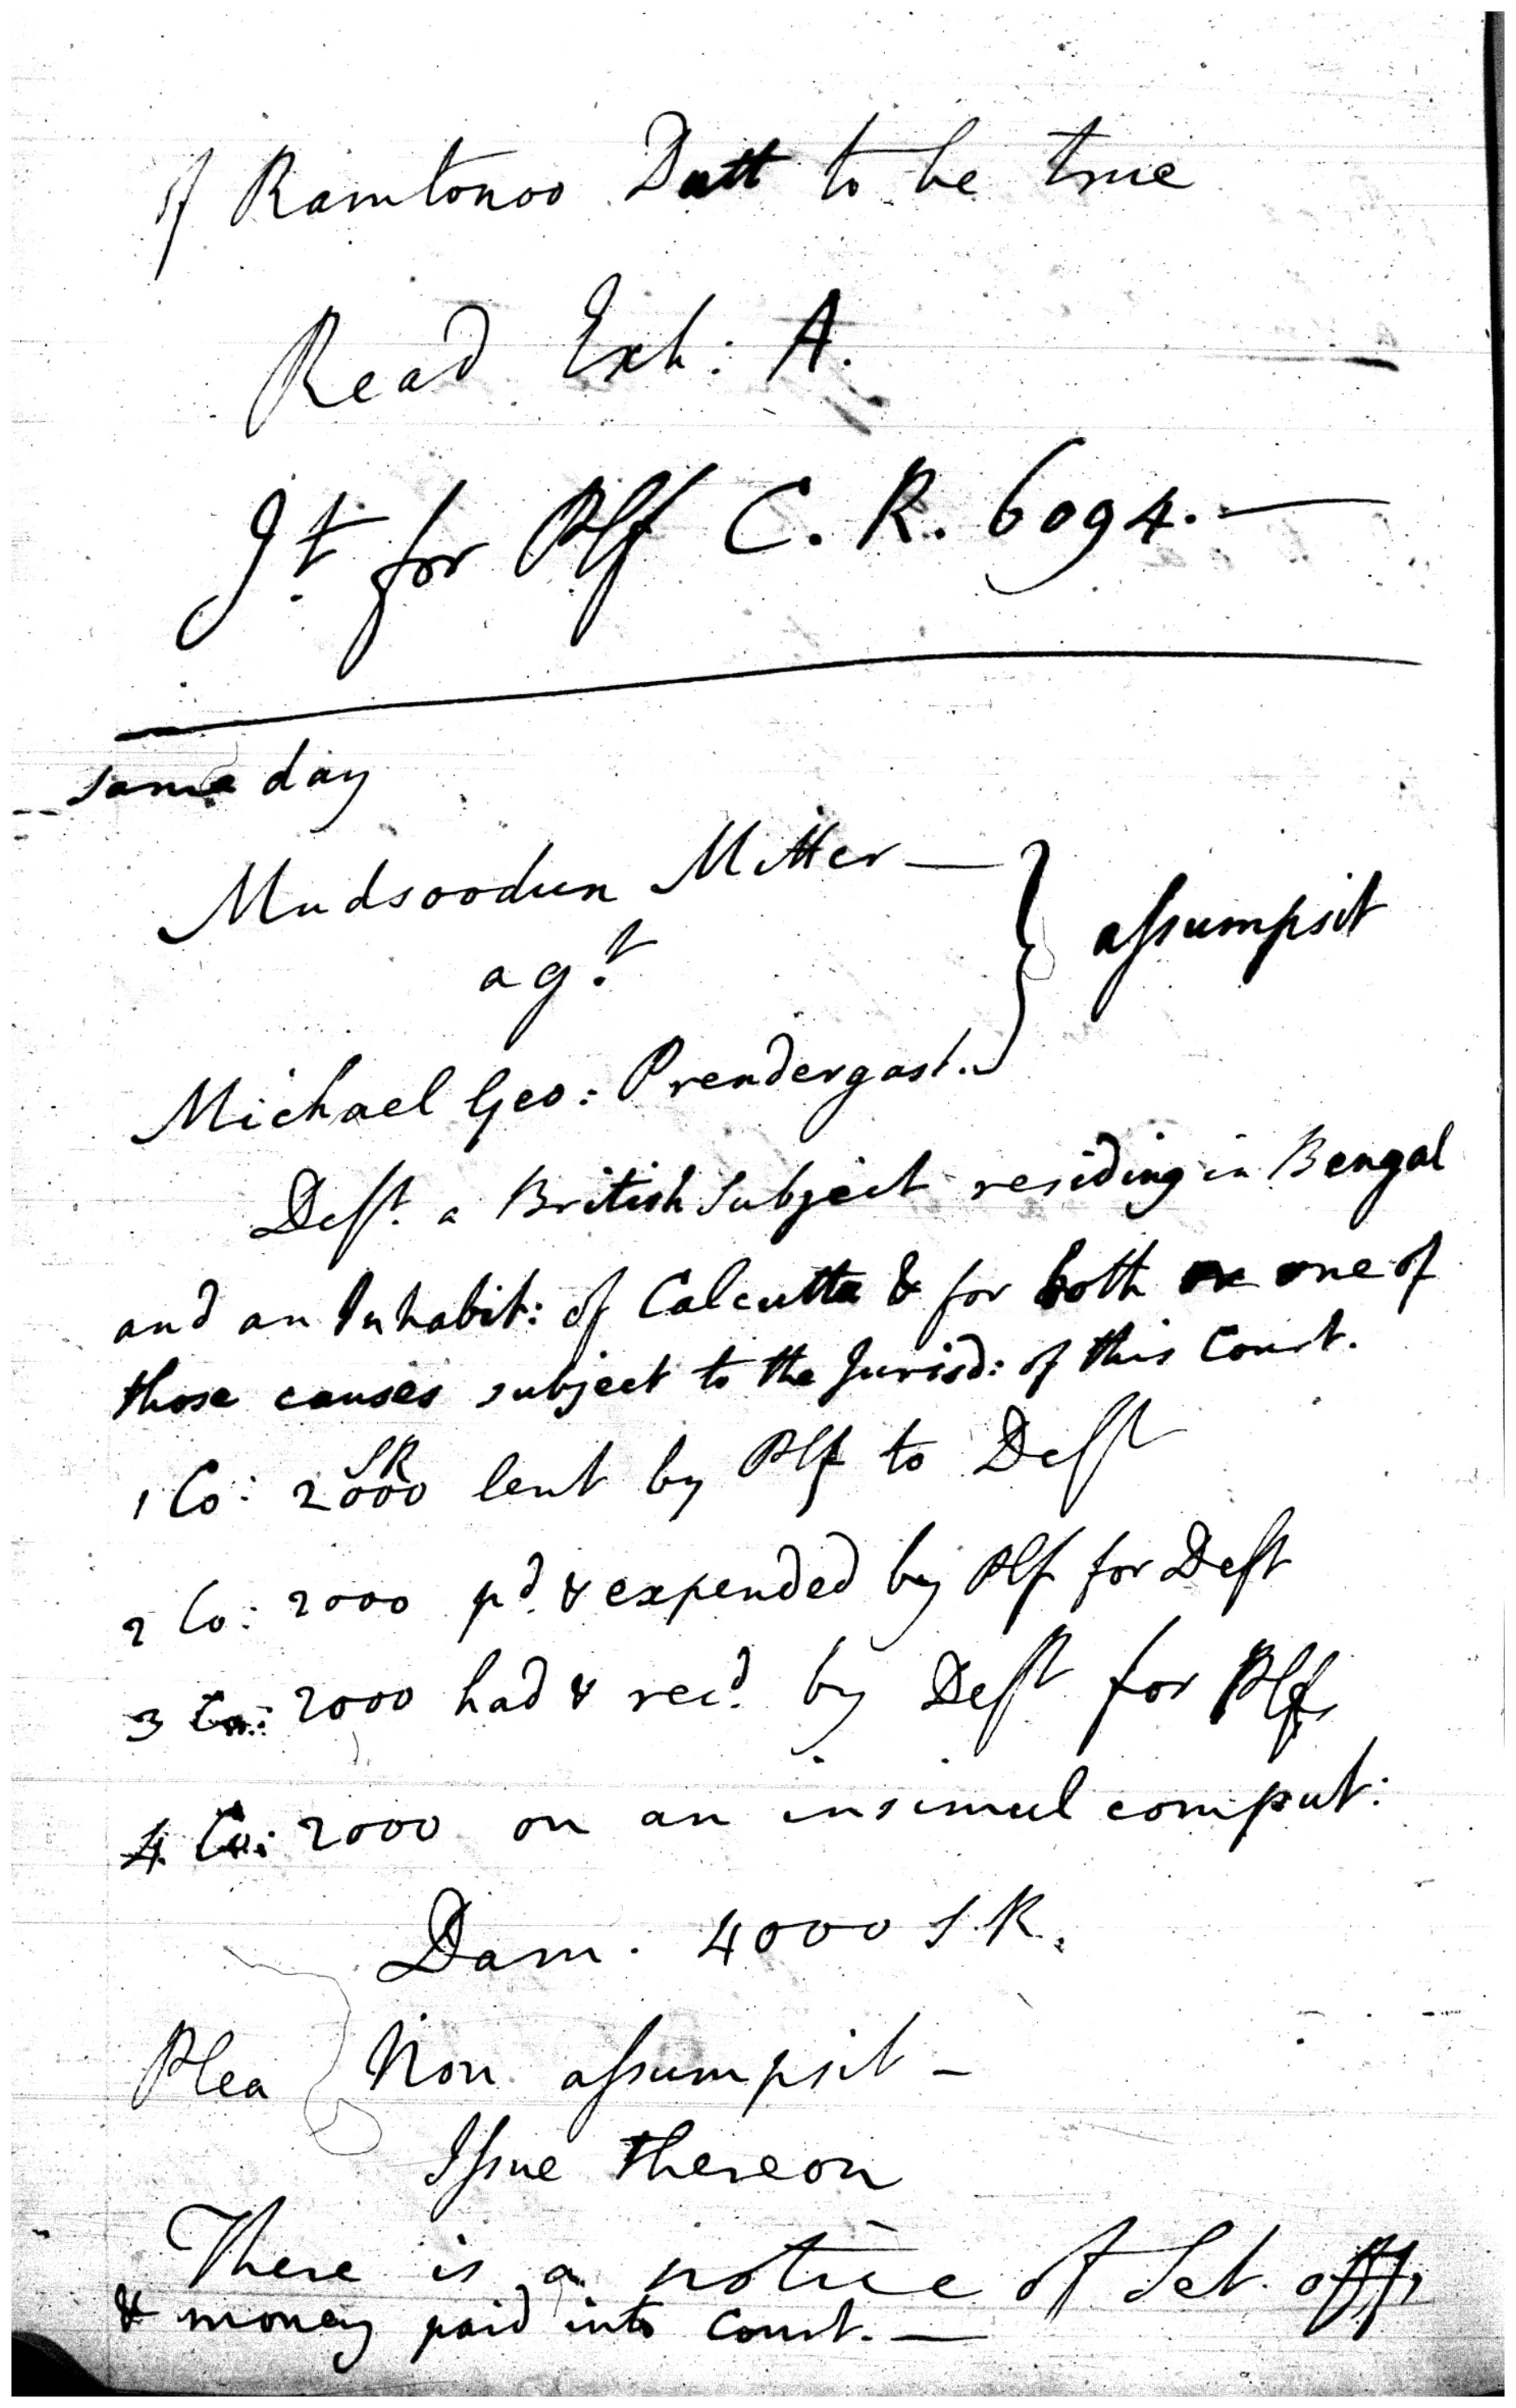 of Ramtonoo Dutt to be true
Read Exh: A.
Jt. for Plf C. R. 6094.—
same day
Mudsoodun Mitter —
agt.
assumpsit
Michael Geo: Prendergast.
Deft. a British Subject residing in Bengal
and an Inhabit: of Calcutta & for both or one of
those causes subject to the Jurisd: of this Court.
1 Co: 2000 SR lent by Plf to Deft
2 Co: 2000 pd. & expended by Plf for Deft
3 Co: 2000 had & recd. by Deft for Plf
4 Co: 2000 on an insimul comput:
Dam. 4000 S.R.
Plea Non assumpsit —
Issue thereon
There is a notice of Set off,
& money paid into Court. —